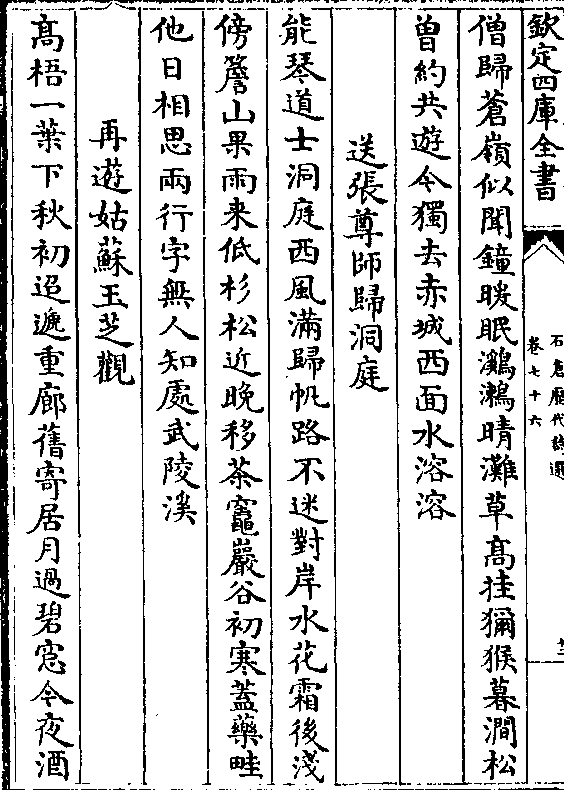 欽定四庫全書
石倉歷代詩選
卷七十六
僧歸蒼嶺似聞鐘暖眠鸂鶒晴灘草髙挂獼猴暮澗松
曾約共遊今獨去赤城西面水溶溶
送張尊師歸洞庭
能琴道士洞庭西風滿歸帆路不迷對岸水花霜後淺
傍簷山果雨来低杉松近晚移茶竈巖谷初寒蓋藥畦
他日相思兩行字無人知處武陵溪
再遊姑蘇玉芝觀
髙梧一葉下秋初迢遞重廊舊寄居月過碧窓今夜酒